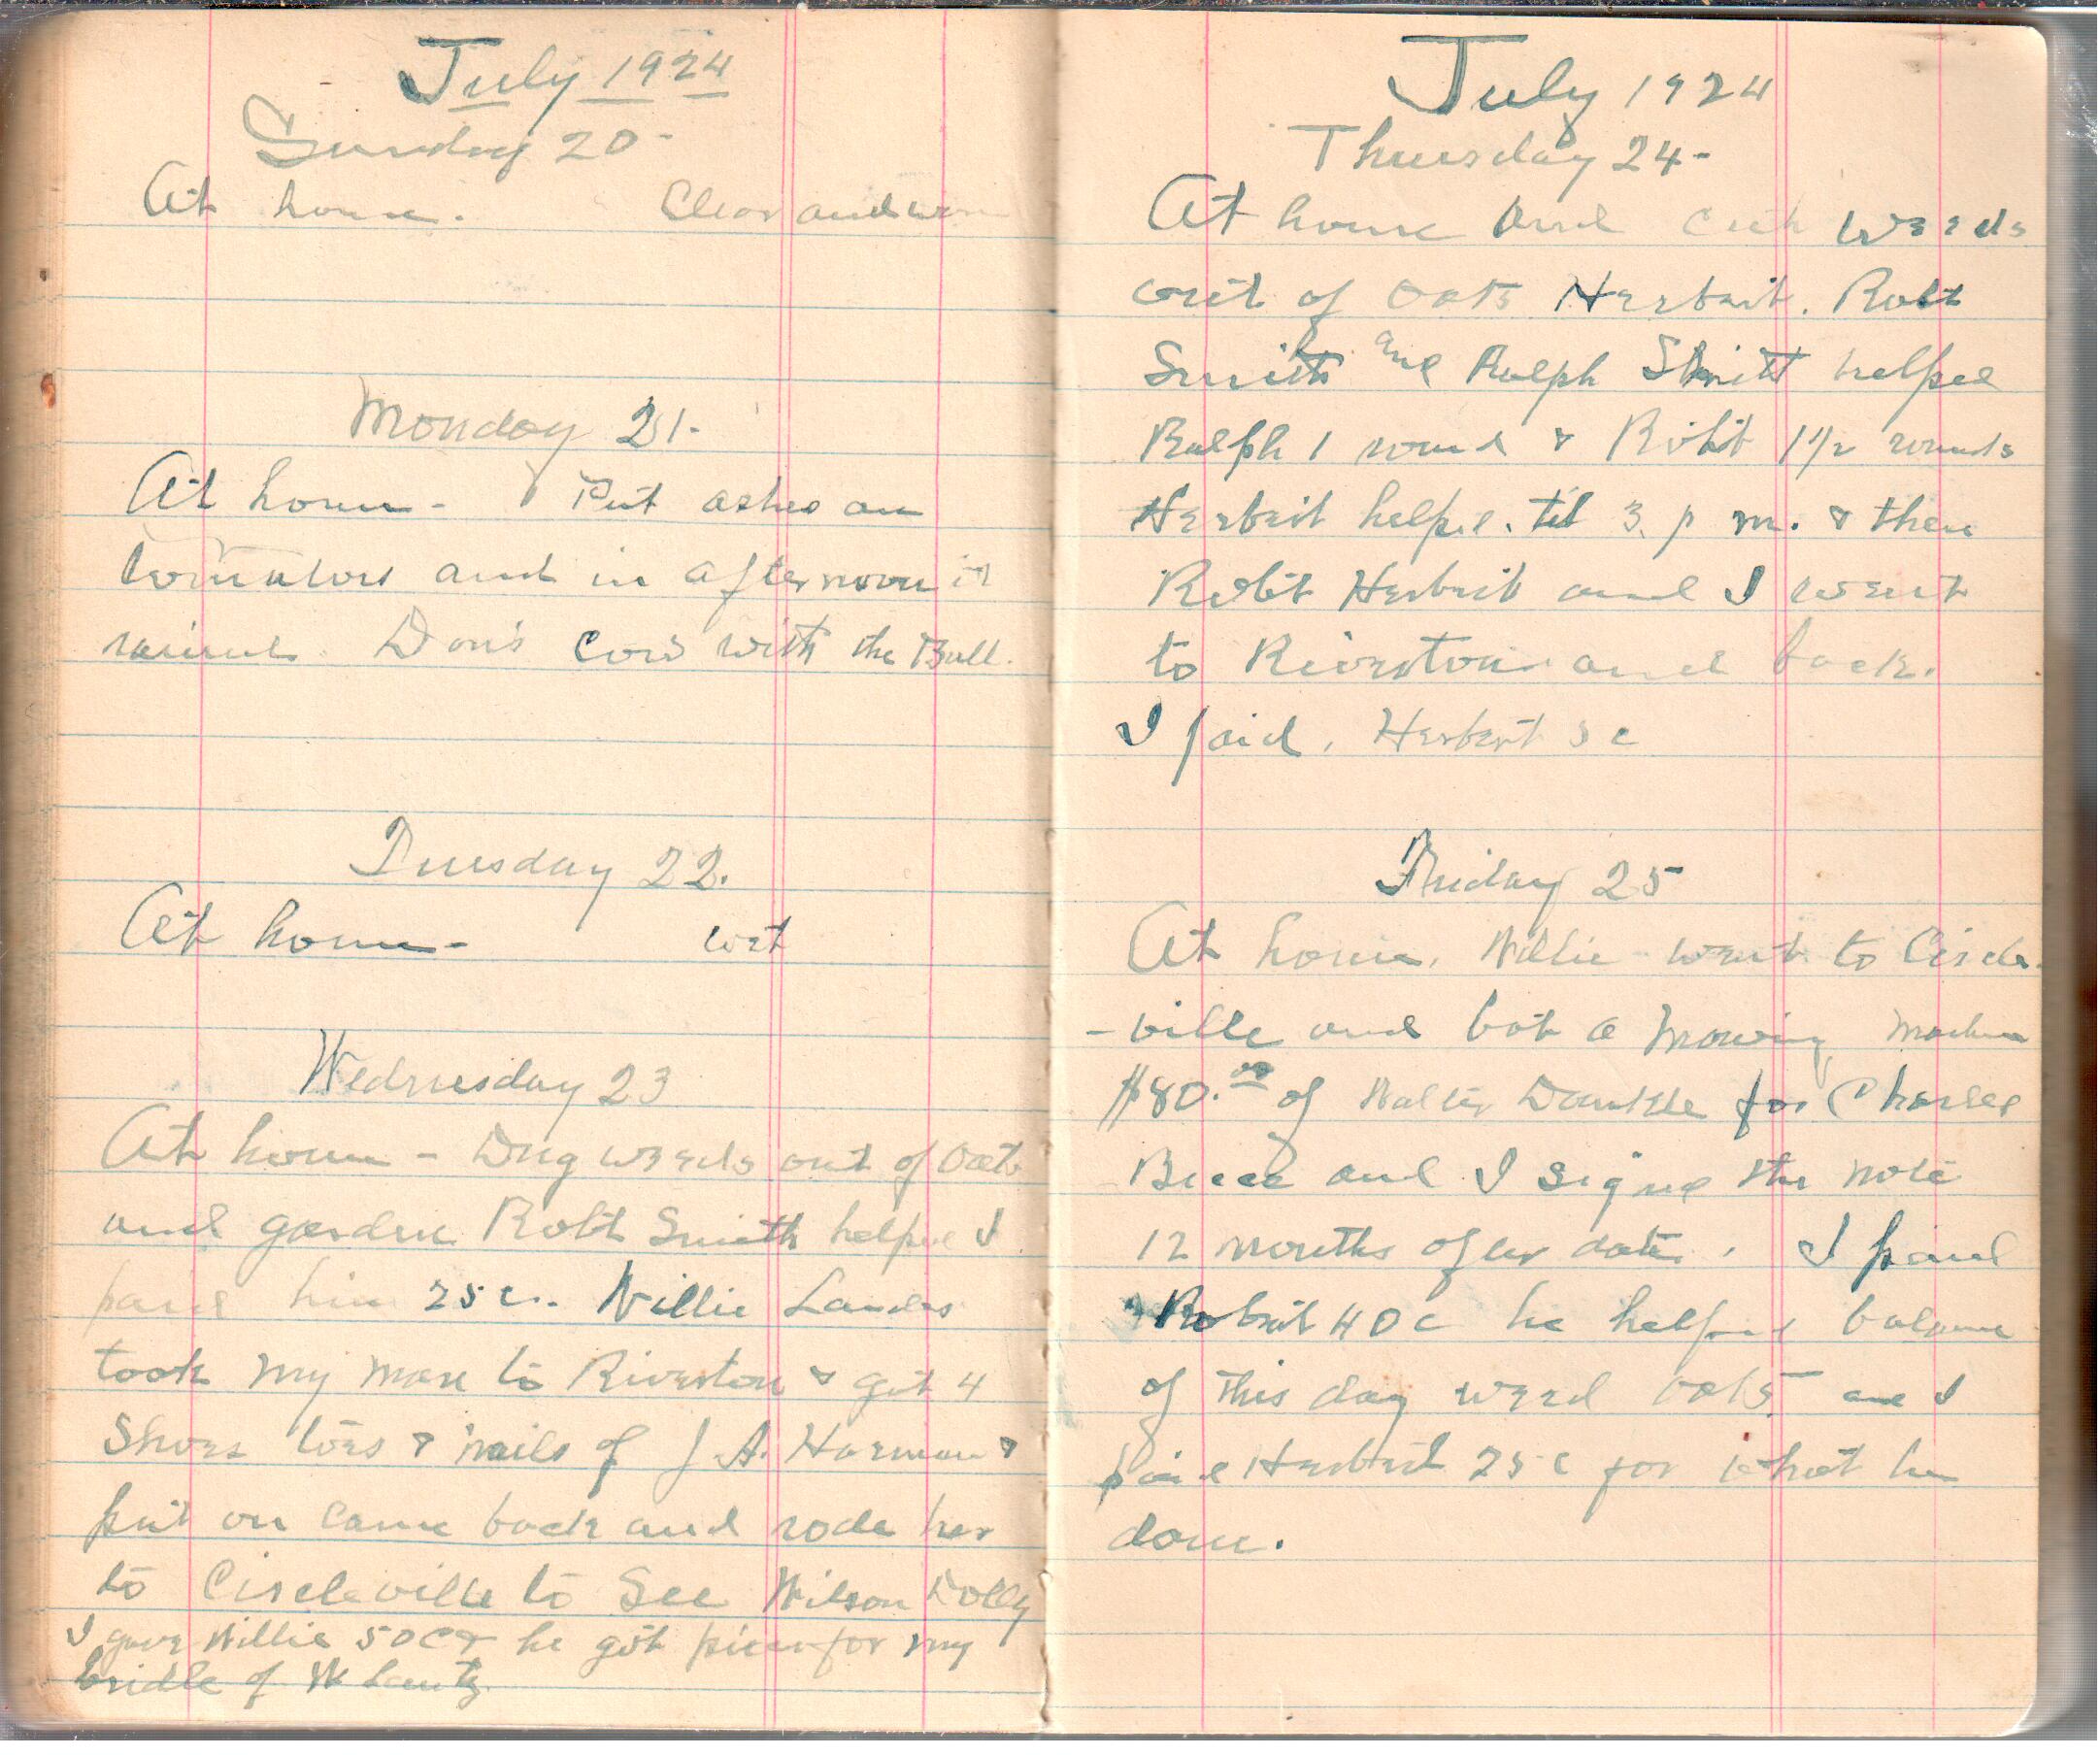 July 1924
Sunday 20-
At home. Clear and warm
Monday 21.
At home- Put ashes on
tomatoes and in afternoon it
rained. Don's Cow with the Bull.
Tuesday 22.
At home- wet
Wednesday 23
At home - Dug weeds out of Oats
and garden Robt Smith helped I
paid him 25c. Willie Landes
took my mare to Riverton & got 4
Shoes toes & nails of J. A. Harman &
put on came back and rode her
to Circleville to See Wilson Dolly
I gave Willie 50c & he got piece for my
bridle of W Lantz
July 1924
Thursday 24-
At home and cut weeds
out of Oats Herbert. Robt
Smith and Ralph Smith helped
Ralph 1 round & Robt 1 1/2 rounds
Herbert helped. til 3. p m. & then
Robt Herbert and I went
to Riverton and back.
I paid. Herbert 5c
Friday 25
At home. Willie went to Circle-
-ville and bot a Mowing Machine
$80.00 of Walter Dunkle for Charles
and I signed the note
12 months after date. I paid
Robert 40c he helped balance
of this day weed oats and I
paid Herbert 25c for what he
done.